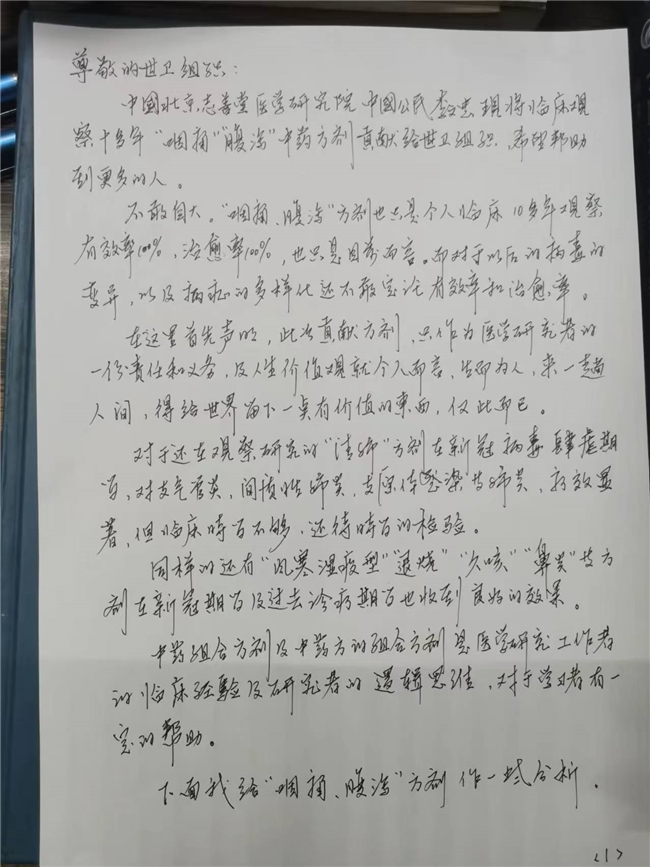 尊敬的世卫组织：
中国北京志善堂医学研究院中国公民 现将临床观
察十多年“咽痛”“腹泻”中药方剂贡献给世卫组织，希望帮助
到更多的人。
不敢自大。“咽痛、腹泻”方剂也只是个人临床10多年观察
有效率100%，治愈率100%，也只是目前而言。而对于以后的病毒的
变异，以及病症的多样化还不敢定论有效率和治愈率。
在这里首先声明，此次贡献方剂，只作为医学研究者的
一份责任和义务，及人生价值观就个人而言，生而为人，来一趟
人间，得给世界留下一点有价值的東西，仅此而已。
对于还在观察研究的“清肺”方剂在新冠病毒肆虐期
间，对支气管炎，间质性肺炎，支原体感染等肺炎，疗效显
著，但临床時间不够，还待時间的检验。
同样的还有“风寒湿疫型”“退烧”“久咳”“鼻炎”等方
剂在新冠期间及过去诊疗期间也收到良好的效果。
中药组合方剂及中药方的组合方剂是医学研究工作者
的临床经验及研究者的逻辑思维，对于学习者有一
定的帮助。
下面我给“咽痛、腹泻”方剂作一些分析。
<1>